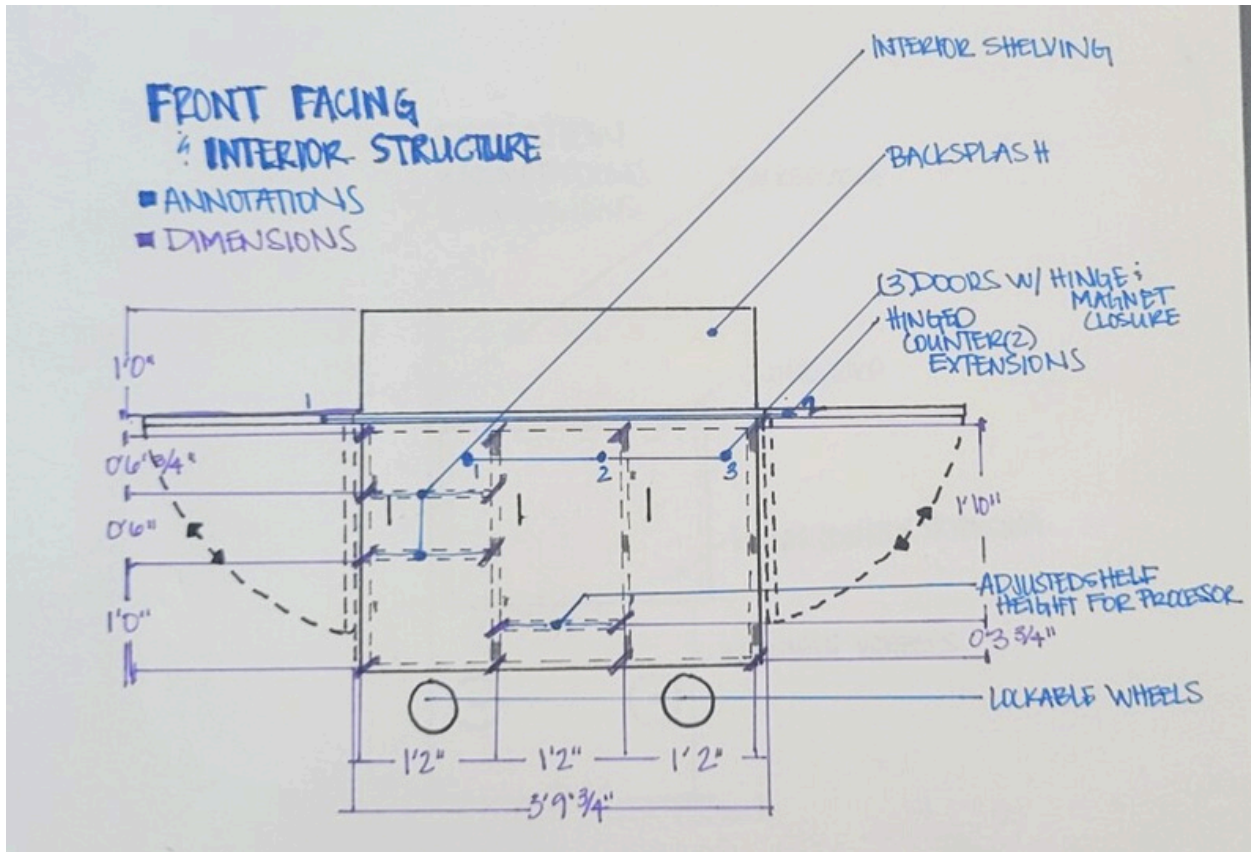 FRONT FACING
& INTERIOR STRUCTURE
ANNOTATIONS
DIMENSIONS
INTERIOR SHELVING
BACKSPLASH
(3) DOORS W/ HINGE &
MAGNET
CLOSURE
HINGED
COUNTER (2)
EXTENSIONS
1'0"
1
2
0'6" 3/4"
1
2
3
0'6"
1'10"
1'0"
ADJUSTED SHELF
HEIGHT FOR PROCESOR
0'3 3/4"
LOCKABLE WHEELS
1'2"
1'2"
1'2"
3'9" 3/4"